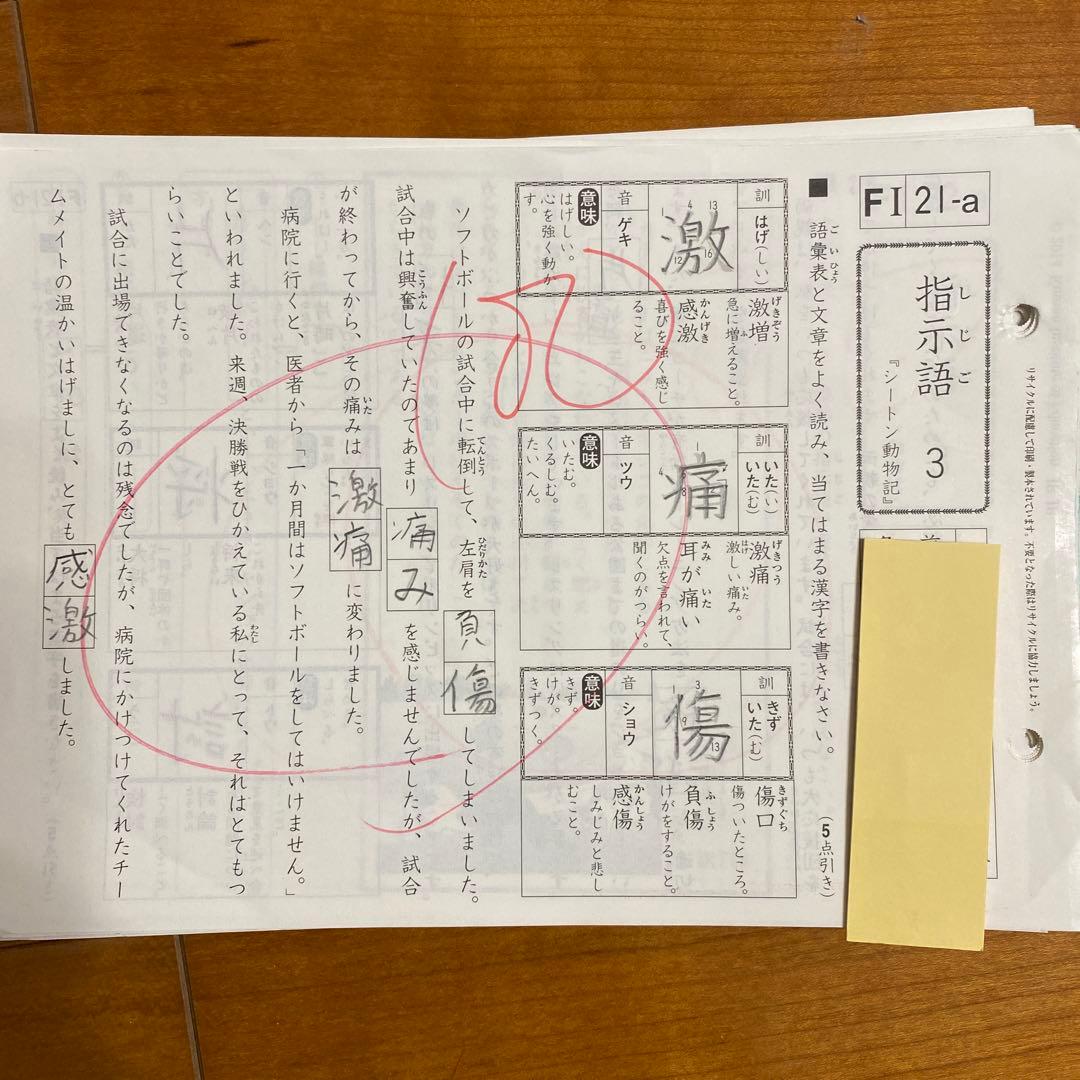 FⅠ 21-a
指示語 3
しじご
『シートン動物記』
リサイクルに配慮して印刷・製本されています。不要となった際はリサイクルに協力しましょう。
■ 語彙表と文章をよく読み、当てはまる漢字を書きなさい。
ごいひょう
(5点引き)
訓 はげ(しい)
激
音 ゲキ
意味 はげしい。
心を強く動か
す。
激増
げきぞう
急に増えること。
ふ
感激
かんげき
喜びを強く感じ
ること。
訓 いた(い)
いた(む)
痛
音 ツウ
意味 いたむ。
くるしむ。
たいへん。
激痛
げきつう
激しい痛み。
はげ いた
耳が痛い
みみ いた
欠点を言われて、
聞くのがつらい。
訓 きず
いた(む)
傷
音 ショウ
意味 きず。
けが。
きずつく。
傷口
きずぐち
傷ついたところ。
負傷
ふしょう
けがをすること。
感傷
かんしょう
しみじみと悲し
むこと。
ソフトボールの試合中に転倒して、左肩を負傷してしまいました。
てんとう ひだりかた
試合中は興奮していたのであまり痛みを感じませんでしたが、試合
こうふん
が終わってから、その痛みは激痛に変わりました。
いた
病院に行くと、医者から「一か月間はソフトボールをしてはいけません。」
といわれました。来週、決勝戦をひかえている私にとって、それはとてもつ
わたし
らいことでした。
試合に出場できなくなるのは残念でしたが、病院にかけつけてくれたチー
ムメイトの温かいはげましに、とても感激しました。